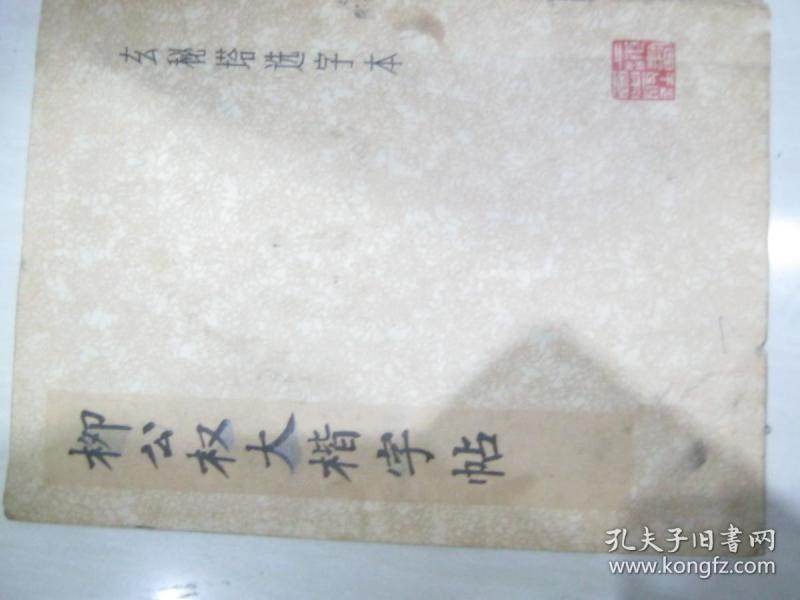 玄秘塔选字本
柳公权大楷字帖
孔夫子旧书网
www.kongfz.com